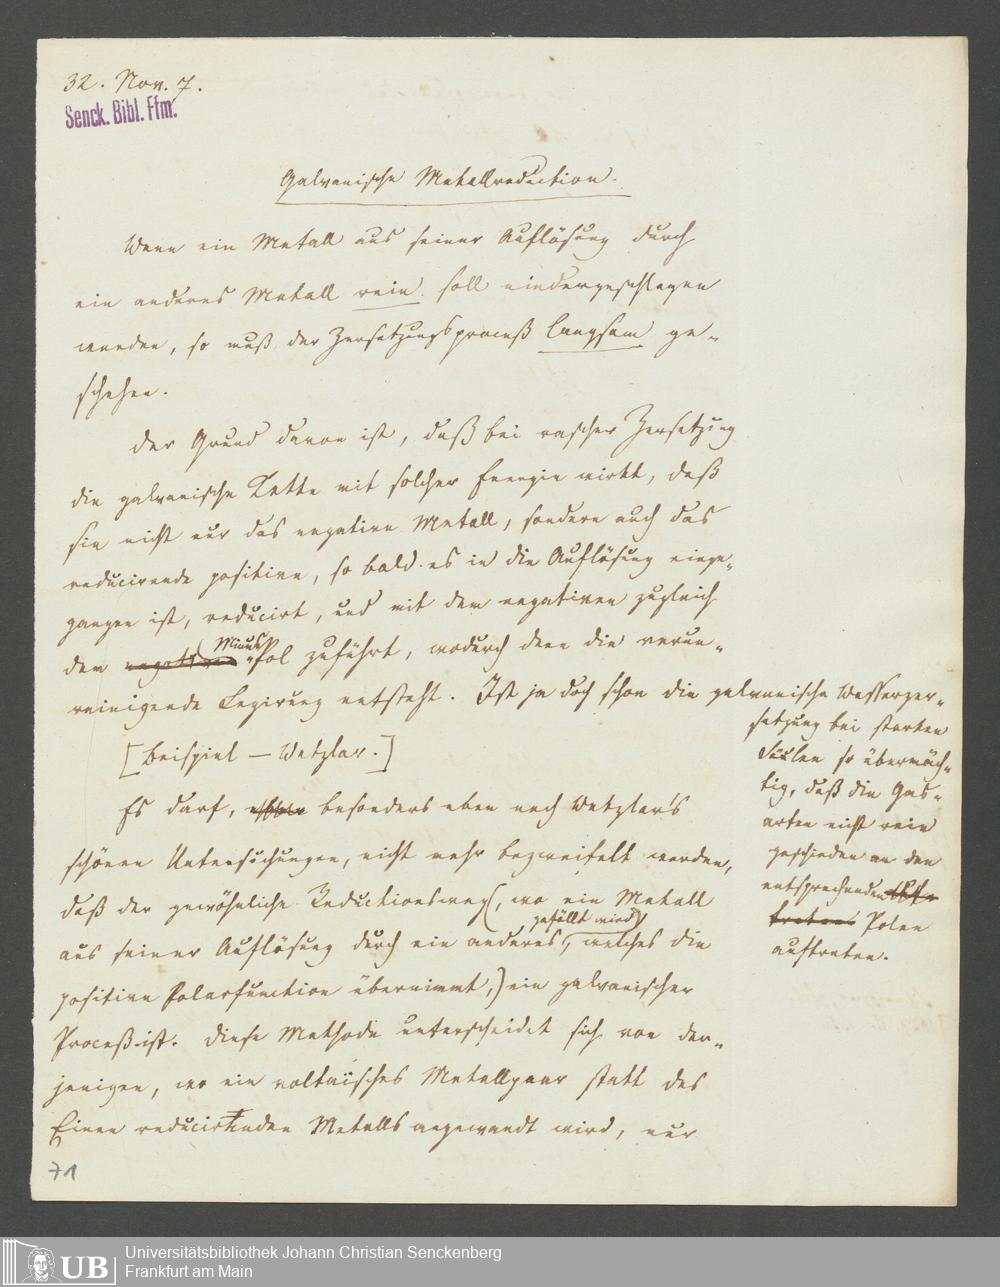 32. Nov. 7.
Senck. Bibl. Ffm.
Galvanische Metallreduction.
Wenn ein Metall aus seiner Auflösung durch
ein anderes Metall rein soll niedergeschlagen
werden, so muß der Zersetzungsproceß langsam ge-
schehen.
Der Grund davon ist, daß bei rascher Zersetzung
die galvanische Kette mit solcher Energie wirkt, daß
sie nicht nur das negative Metall, sondern auch das
reducirende positive, so bald es in die Auflösung einge-
gangen ist, reducirt, und mit dem negativen zugleich
Minus
dem negativen -Pol zuführt, wodurch denn die verun-
reinigende Legirung entsteht. Ist ja doch schon die galvanische Wasserzer-
setzung bei starken
Säulen so übermäch-
tig, daß die Gas-
arten nicht rein
geschieden an den
entsprechenden
Polen
auftreten.
[Beispiel – Wetzlar.]
Es darf, besonders eben nach Wetzlar's
schönen Untersuchungen, nicht mehr bezweifelt werden,
daß der gewöhnliche Reductionsweg (, wo ein Metall
gefällt wird
aus seiner Auflösung durch ein anderes, welches die
positive Polarfunction übernimmt,) ein galvanischer
Proceß ist. Diese Methode unterscheidet sich von der-
jenigen, wo ein voltaisches Metallpaar statt des
Einen reducirenden Metalls angewandt wird, nur
71
UB
Universitätsbibliothek Johann Christian Senckenberg
Frankfurt am Main